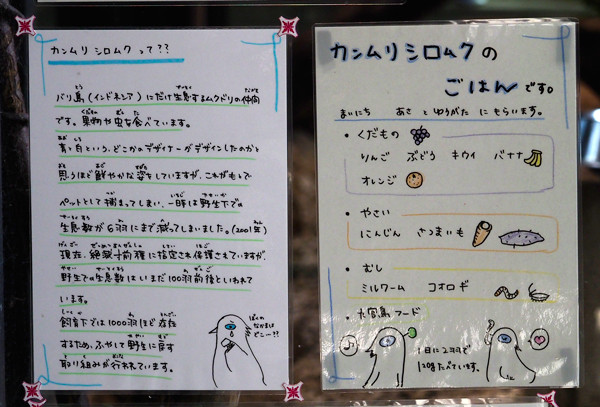 カンムリシロムク って??
バリ島(インドネシア)にだけ生息するムクドリの仲間
です。果物や虫を食べています。
青と白という、どこかのデザイナーがデザインしたのかと
思うほど鮮やかな姿をしていますが、これがもとで
ペットとして捕まってしまい、一時は野生下での
生息数が6羽にまで減ってしまいました。(2001年)
現在、絶滅寸前種に指定され保護されていますが、
野生での生息数はいまだ100羽前後といわれて
います。
飼育下では1000羽ほど存在
するため、ふやして野生に戻す
取り組みが行われています。
ぼくの
なかまは
どこー??
カンムリシロムクの
ごはんです。
まいにち あさ と ゆうがた に もらいます。
・くだもの
りんご ぶどう キウイ バナナ
オレンジ
・やさい
にんじん さつまいも
・むし
ミルワーム コオロギ
・九官鳥フード
1日に2羽で
120gたべています。